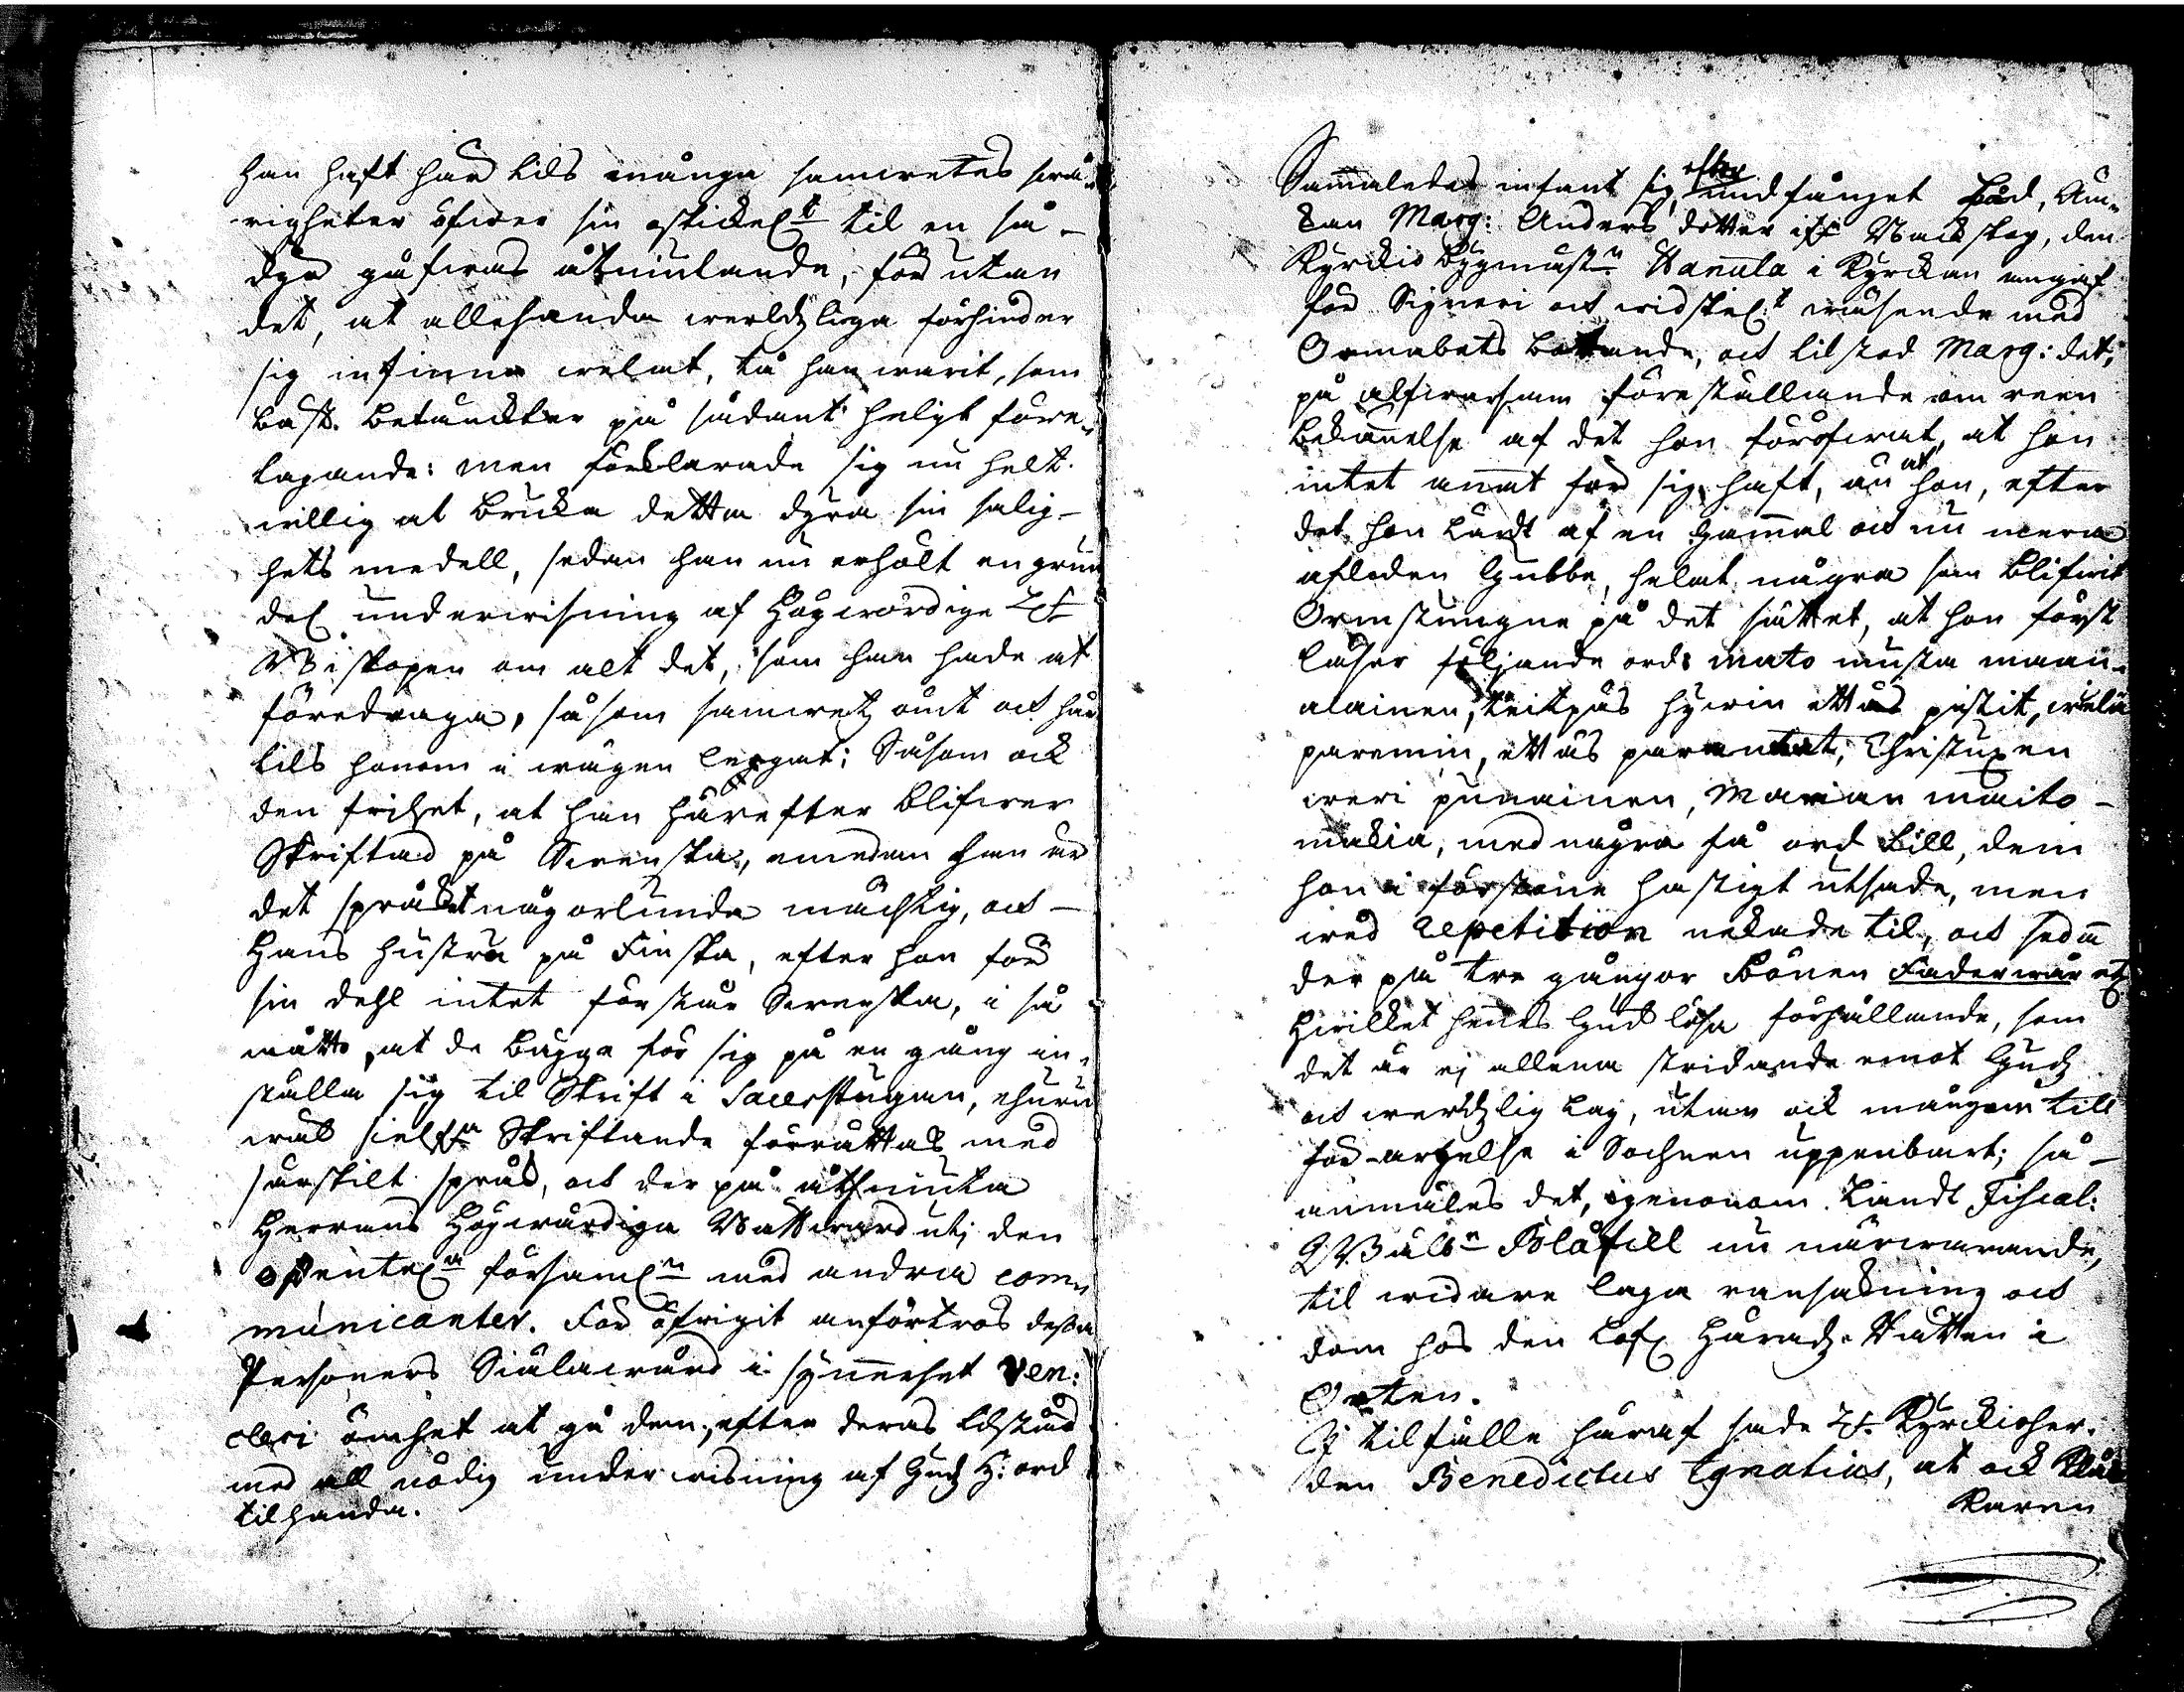 han haft här tils många samwetes swå-
righeter öfwer sin oskickel:t til en så-
dyr gåfwas åtniutande, för utan
det, at allehanda werldzliga förhinder
sig infinna welat, tå han warit, som
bäst. betänckter på sådant helgt före-
tagande: men förklarade sig nu helt
willig at bruka detta dyra sin salig-
hets medell, sedan han nu erhålt en grun
del underwisning af Högwördige H:r
Biskopen om alt det, som han hade at
föredraga, såsom samwetz ömt och här
tils honom i wägen legat; Såsom ock
den frihet, at han härefter blifwer
Skriftad på Swenska, emedan han är
det språket någorlunda mächtig, och
Hans hustru på Finska, efter hon för
sin dehl intet förstår Swenska, i så
måtto, at de bägge för sig på en gång in-
ställa sig til Skrift i Sacerstugan, ehuru
wäl sielfwa Skriftande förrättas med
särskilt språk, och der på åthniuta
Herrans Högwärdiga Nattward uti den
offentel:a församl:n med andra com-
municanter. För öfrigit anförtros dessa
Personers Siälawård i synnerhet Ven:
cleri ömhet at gå dem, efter deras tilstånd
med all nödig underwisning af Gudz H: ord
tilhanda.
Sammaledes infant sig, efter undfånget bud, Än-
kan Marg: Anders dotter if: Backskog, den
Kyrckio bygmäst:n Hannula i Kyrckan angif
för Signeri och widskepl:t wäsende med
Ormabets botande, och tilstod Marg: det,
på alfwarsam föreställande om reen
bekännelse af det hon föröfwat, at hon
intet annat för sig haft, än at hon, efter
det hon lärdt af en gammal och nu mera
afleden Gubbe, helat några som blifwit
Ormstungne på det sättet, at hon först
läser följande ord: mato musta maan-
alainen, teitpäs hywin ettäs pistit, wielä
paremin, ettäs parantat, Christuxen
weri punainen, Marian maito-
makia, med några få ord till, dem
hon i förstone hastigt utsade, men
wed repetition nekade til, och sedan
der på tre gångor bönen Fader wår etc
Hwilket hennes Gudlösa förhållande, som
det är ej allena stridande emot Gudz
och werldzlig lag, utan ock mångom till
förargelse i Sochnen uppenbart; så
anmäles det, igenom Landt Fiscal:
Wälb:n Blåfiell nu närwarande,
til widare laga ransakning och
dom hos den Lofl: Häradz-Rätten i
Orten.
I tilfälle häraf sade H:r Kyrckioher-
den Benedictus Ignatius, at ock Klåc
karen